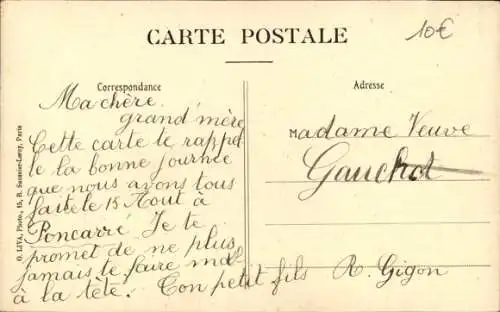 CARTE POSTALE
10€
Correspondance
Adresse
Ma chère
grand'mère
Cette carte te rappel
le la bonne journée
que nous avons tous
faite le 15 Août à
Poncarré. Je te
promet de ne plus
jamais te faire mal
à la tête. Ton petit fils R. Gigon
Madame Veuve
Gauchot
O. LIVA, Photo., 15, R. Saunier-Leroy, Paris